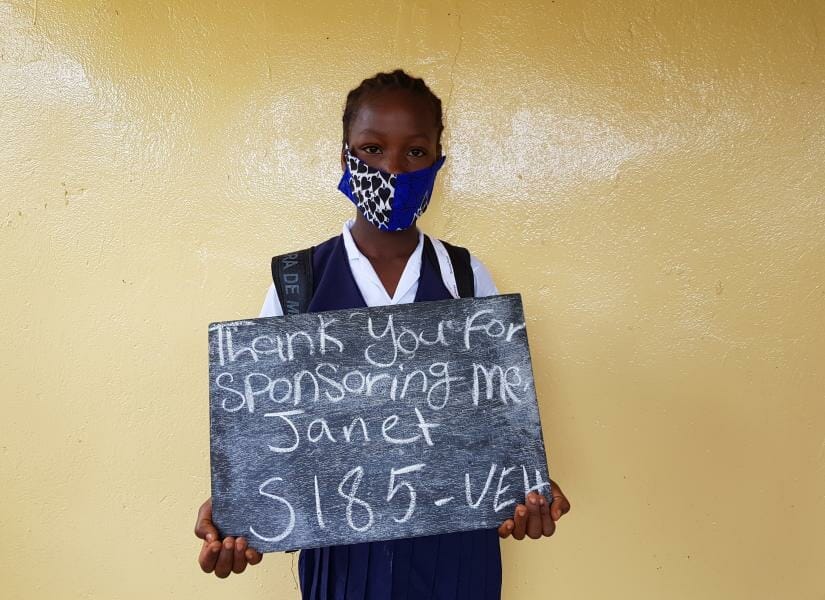 Thank You For
sponsoring me,
Janet
S185-VEH
RA DE M